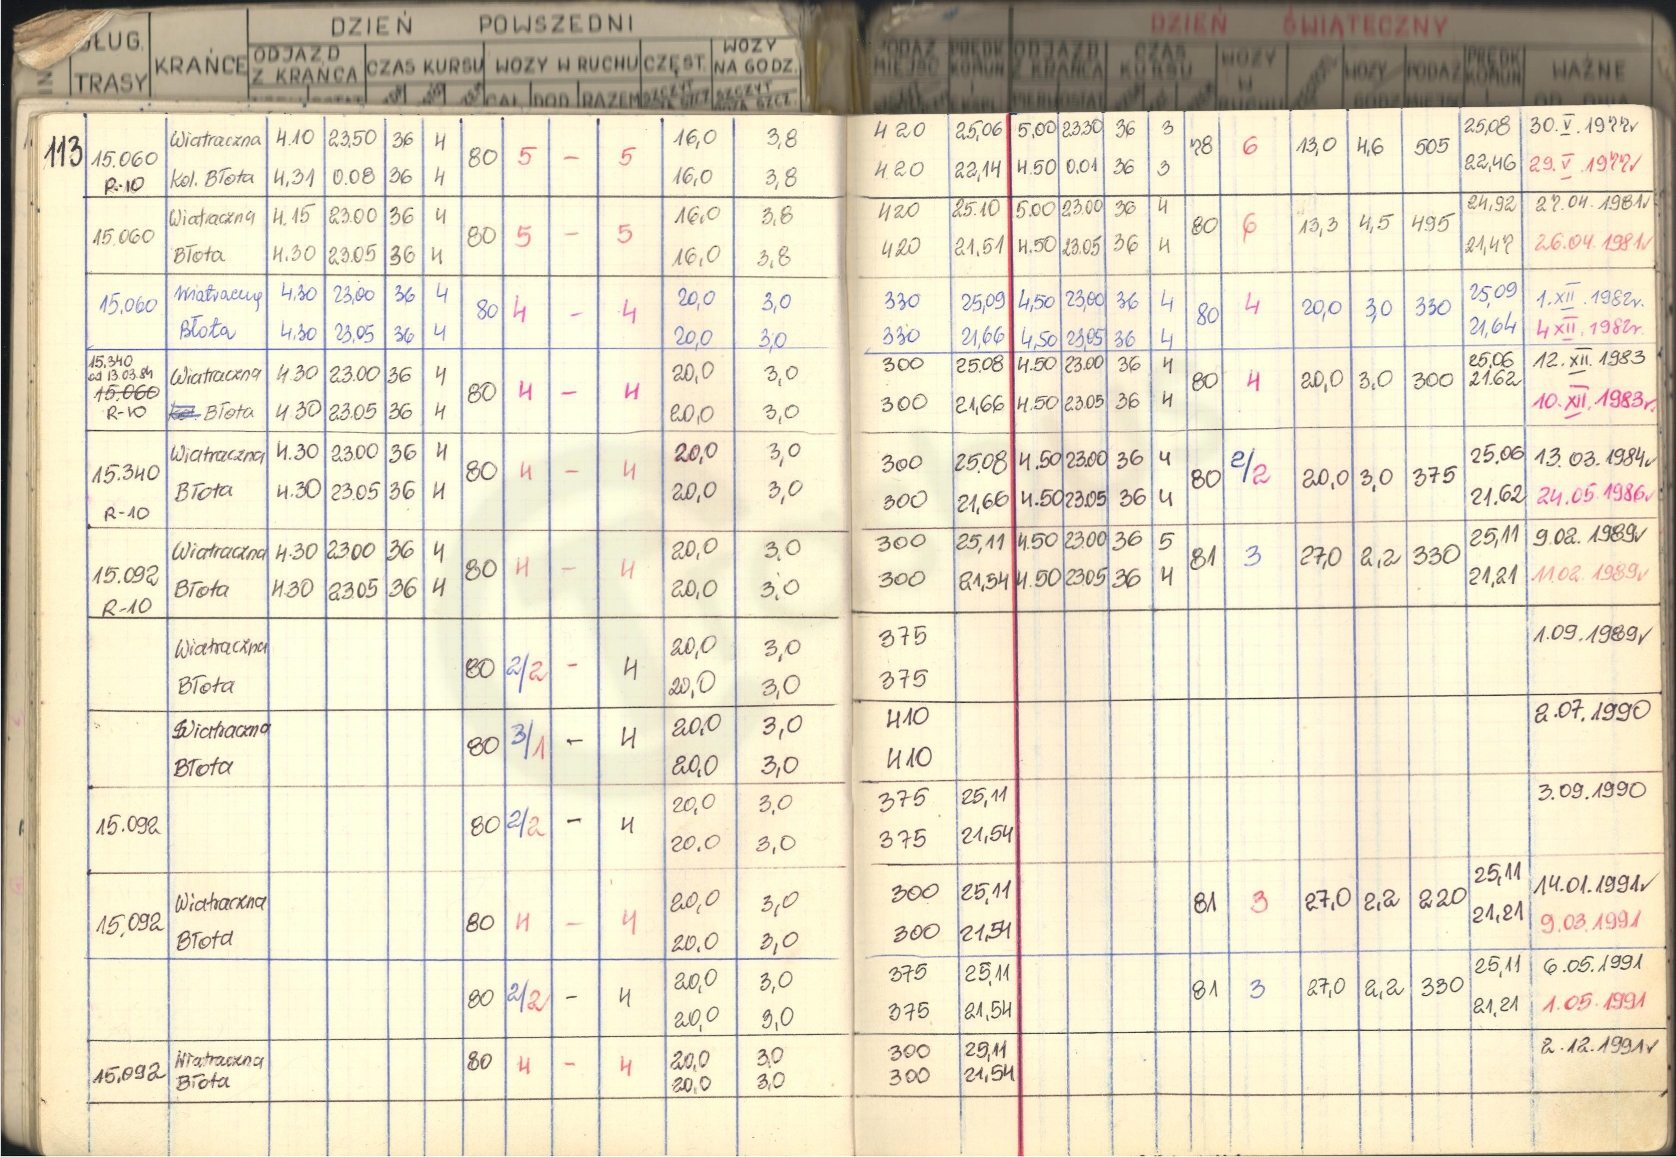 DZIEŃ POWSZEDNI DZIEŃ ŚWIĄTECZNY
TRASY KRAŃCE ODJAZD Z KRAŃCA CZAS KURSU WOZY W RUCHU CZĘST. WOZY NA GODZ. PODAŻ MIEJSC PRĘDK KOMUN ODJAZD Z KRAŃCA CZAS KURSU WOZY W RUCHU WOZY PODAŻ PRĘDK KOMUN WAŻNE
113 15.060 R-10 Wiatraczna 4.10 23,50 36 4 80 5 – 5 16,0 3,8 420 25,06 5,00 23.30 36 3 78 6 13,0 4,6 505 25,08 30.V.1977r
kol. Błota 4,31 0.08 36 4 16,0 3,8 420 22,14 4.50 0.01 36 3 22,46 29.V.1977r
15.060 Wiatraczna 4.15 23.00 36 4 80 5 – 5 16,0 3,8 420 25.10 5.00 23.00 36 4 80 6 13,3 4,5 495 24,92 27.04.1981r
Błota 4.30 23.05 36 4 16,0 3,8 420 21,51 4.50 23.05 36 4 21,47 26.04.1981r
15.060 Wiatraczną 4.30 23,00 36 4 80 4 – 4 20,0 3,0 330 25,09 4,50 23,00 36 4 80 4 20,0 3,0 330 25,09 1.XII.1982r.
Błota 4.30 23,05 36 4 20,0 3,0 330 21,66 4,50 23,05 36 4 21,64 4 XII.1982r.
15.340 od 13.03.84 15.060 R-10 Wiatraczna 4.30 23.00 36 4 80 4 – 4 20,0 3,0 300 25.08 4.50 23.00 36 4 80 4 20,0 3,0 300 25,06 12.XII.1983
kol. Błota 4.30 23.05 36 4 20,0 3,0 300 21,66 4.50 23.05 36 4 21.62 10.XII.1983r.
15.340 R-10 Wiatraczna 4.30 23.00 36 4 80 4 – 4 20,0 3,0 300 25.08 4.50 23.00 36 4 80 2/2 20,0 3,0 375 25,06 13.03.1984r
Błota 4.30 23.05 36 4 20,0 3,0 300 21,66 4.50 23.05 36 4 21.62 24.05.1986r
15.092 R-10 Wiatraczna 4.30 23.00 36 4 80 4 – 4 20,0 3,0 300 25,11 4.50 23.00 36 5 81 3 27,0 2,2 330 25,11 9.02.1989r
Błota 4.30 23.05 36 4 20,0 3,0 300 21,54 4.50 23.05 36 4 21,21 11.02.1989r
Wiatraczna 80 2/2 – 4 20,0 3,0 375 1.09.1989r
Błota 20,0 3,0 375
Wiatraczna 80 3/1 – 4 20,0 3,0 410 2.07.1990
Błota 20,0 3,0 410
15.092 80 2/2 – 4 20,0 3,0 375 25,11 3.09.1990
20,0 3,0 375 21,54
15,092 Wiatraczna 80 4 – 4 20,0 3,0 300 25,11 81 3 27,0 2,2 220 25,11 14.01.1991r
Błota 20,0 3,0 300 21,54 21,21 9.03.1991
80 2/2 – 4 20,0 3,0 375 25,11 81 3 27,0 2,2 330 25,11 6.05.1991
20,0 3,0 375 21,54 21,21 1.05.1991
15.092 Wiatraczna 80 4 – 4 20,0 3,0 300 25,11 2.12.1991r
Błota 20,0 3,0 300 21,54